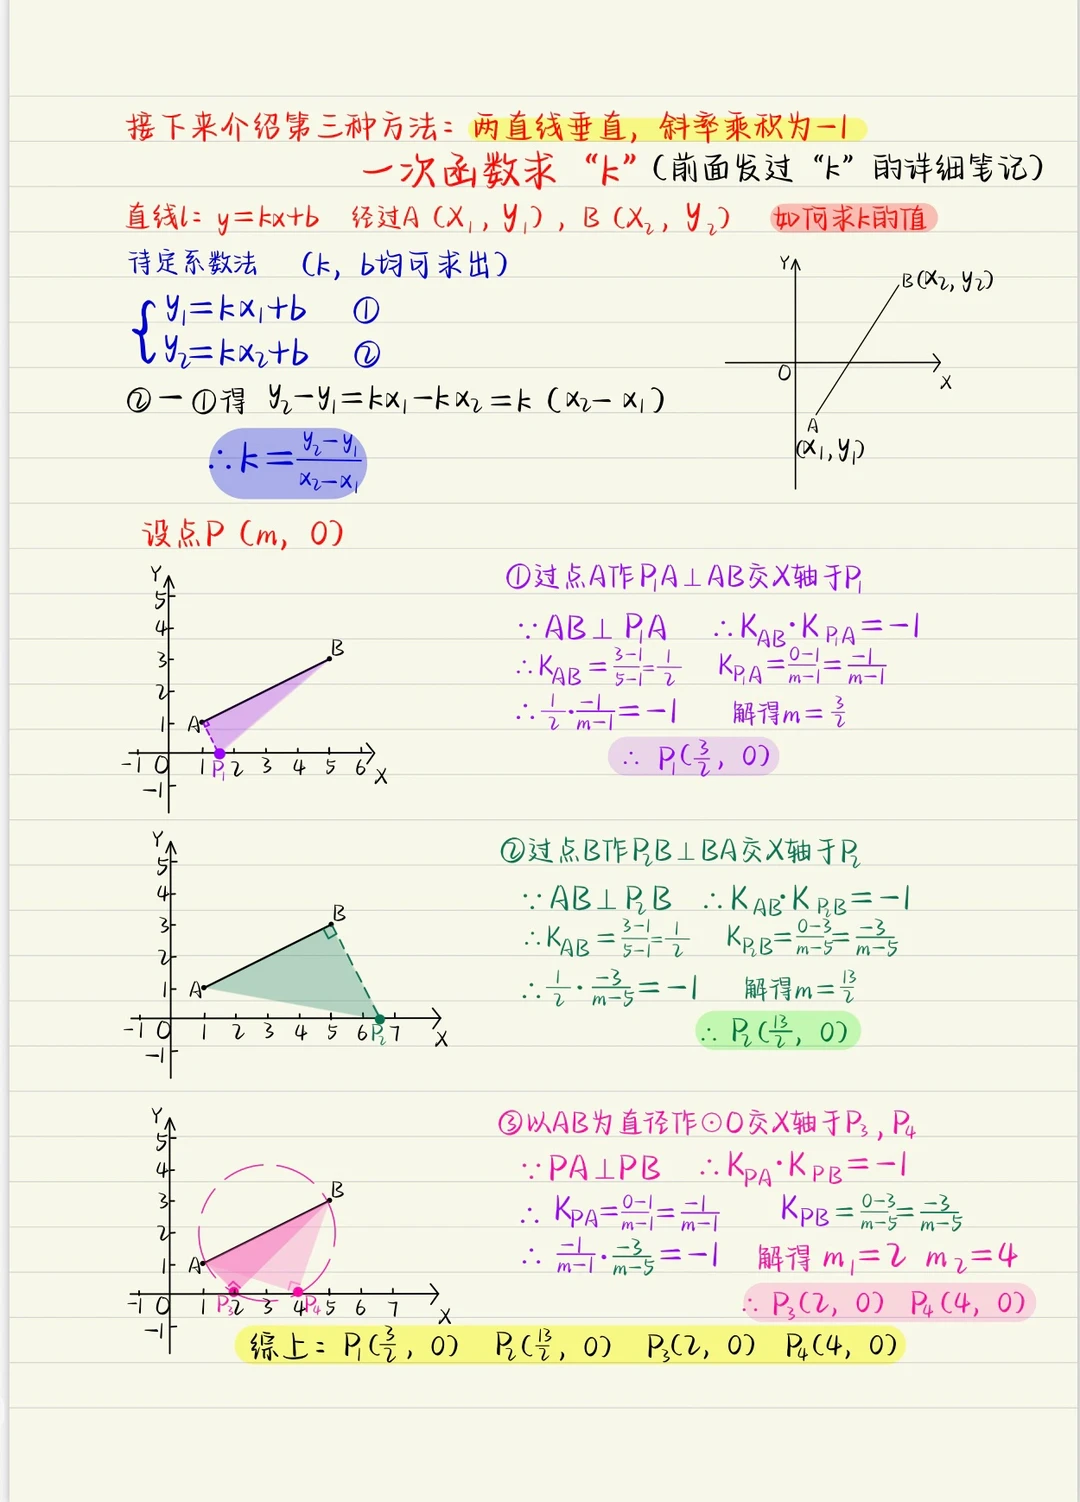 接下来介绍第三种方法：两直线垂直，斜率乘积为-1
一次函数求“k”（前面发过“k”的详细笔记）
直线l：y=kx+b 经过A（x₁，y₁），B（x₂，y₂） 如何求k的值
待定系数法 （k，b均可求出）
y₁=kx₁+b ①
y₂=kx₂+b ②
②-①得 y₂-y₁=kx₁-kx₂=k（x₂-x₁）
∴k=(y₂-y₁)/(x₂-x₁)
Y
B(x₂, y₂)
O
X
A
(x₁, y₁)
设点P（m，0）
Y
5
4
3
2
1
-1 O 1 2 3 4 5 6 X
-1
A
B
P₁
①过点A作P₁A⊥AB交X轴于P₁
∵AB⊥P₁A ∴K_AB·K_P₁A=-1
∴K_AB=(3-1)/(5-1)=1/2 K_P₁A=(0-1)/(m-1)=-1/(m-1)
∴1/2·-1/(m-1)=-1 解得m=3/2
∴P₁(3/2，0)
Y
5
4
3
2
1
-1 O 1 2 3 4 5 6 7 X
-1
A
B
P₂
②过点B作P₂B⊥BA交X轴于P₂
∵AB⊥P₂B ∴K_AB·K_P₂B=-1
∴K_AB=(3-1)/(5-1)=1/2 K_P₂B=(0-3)/(m-5)=-3/(m-5)
∴1/2·-3/(m-5)=-1 解得m=13/2
∴P₂(13/2，0)
Y
5
4
3
2
1
-1 O 1 2 3 4 5 6 7 X
-1
A
B
P₃
P₄
③以AB为直径作⊙O交X轴于P₃，P₄
∵PA⊥PB ∴K_PA·K_PB=-1
∴K_PA=(0-1)/(m-1)=-1/(m-1) K_PB=(0-3)/(m-5)=-3/(m-5)
∴-1/(m-1)·-3/(m-5)=-1 解得m₁=2 m₂=4
∴P₃(2，0) P₄(4，0)
综上：P₁(3/2，0) P₂(13/2，0) P₃(2，0) P₄(4，0)